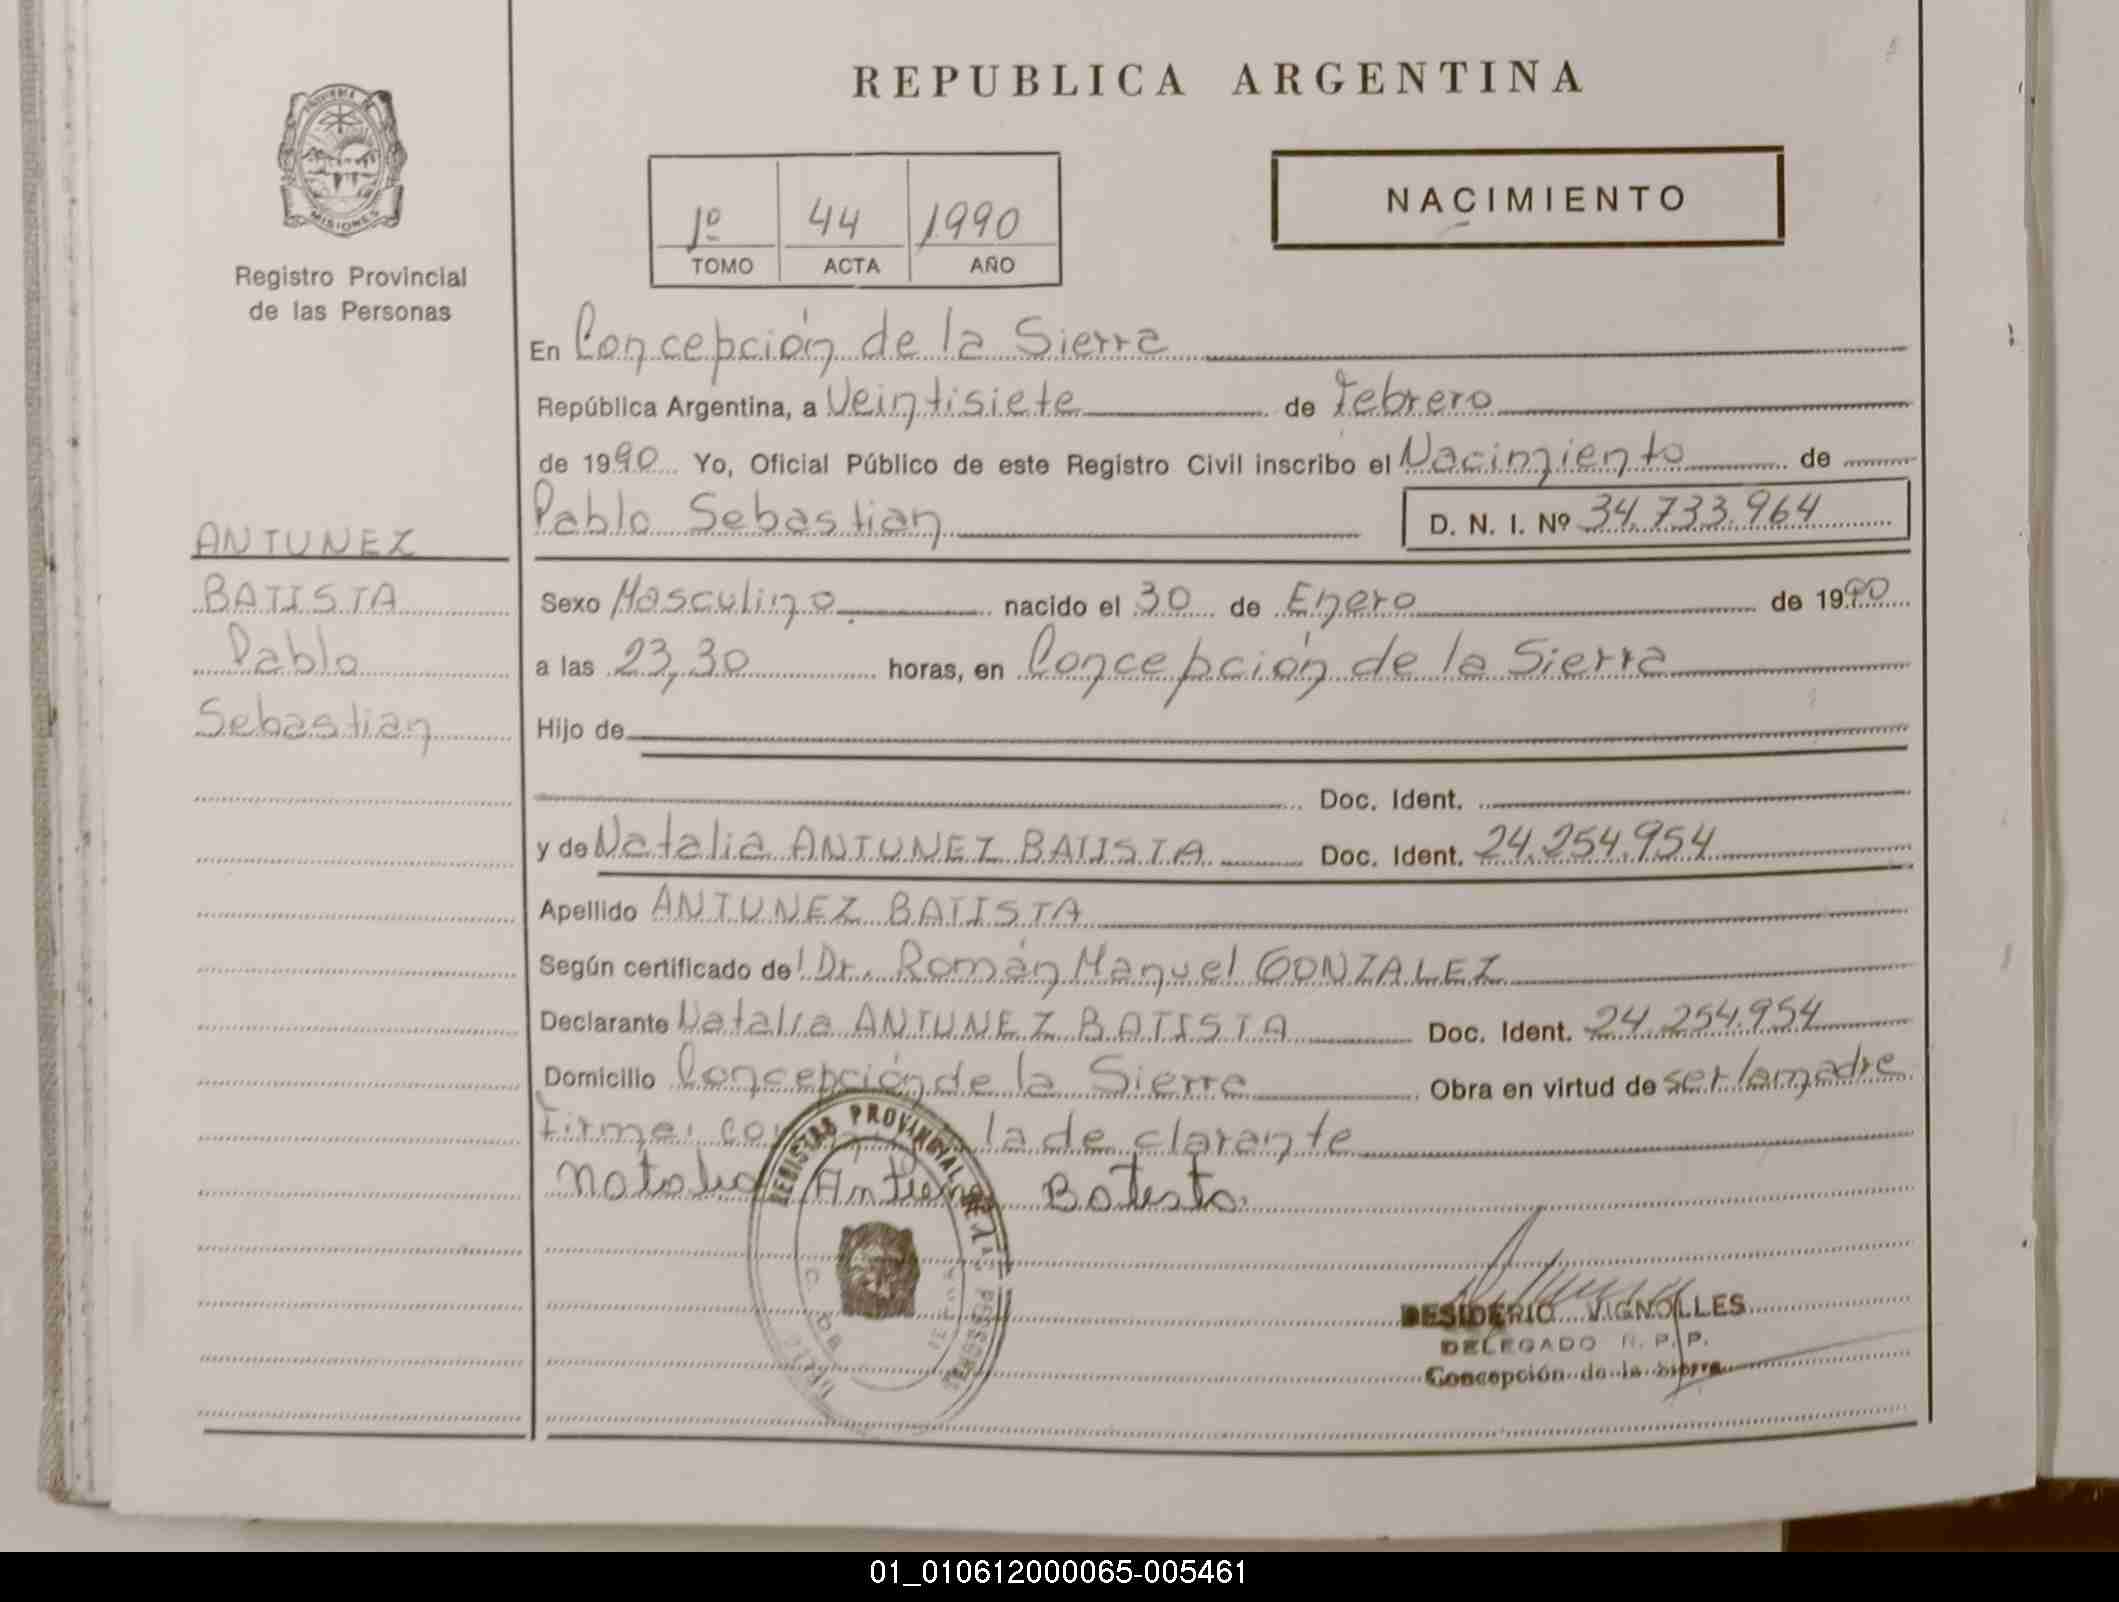 REPUBLICA ARGENTINA
PROVINCIA DE
MISIONES
Registro Provincial
de las Personas
1º 44 1990
TOMO ACTA AÑO
NACIMIENTO
En Concepción de la Sierra
República Argentina, a Veintisiete de Febrero
de 1990 Yo, Oficial Público de este Registro Civil inscribo el Nacimiento de
Pablo Sebastian D. N. I. Nº 34.733.964
ANTUNEZ
BATISTA
Pablo
Sebastian
Sexo Masculino nacido el 30 de Enero de 1990
a las 23,30 horas, en Concepción de la Sierra
Hijo de
Doc. Ident.
y de Natalia ANTUNEZ BATISTA Doc. Ident. 24.254.954
Apellido ANTUNEZ BATISTA
Según certificado del Dr. Román Manuel GONZALEZ
Declarante Natalia ANTUNEZ BATISTA Doc. Ident. 24.254.954
Domicilio Concepción de la Sierra Obra en virtud de ser la madre
Firma la declarante
Natalia Batista
PROVINCIAL DE LAS PERSONAS
DESIDERIO VIGNOLLES
DELEGADO R. P. P.
Concepción de la Sierra
01_010612000065-005461